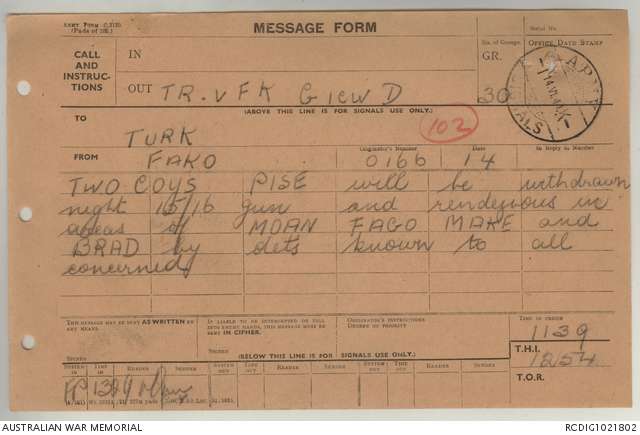 ARMY FORM C.2136
(Pads of 100.)
MESSAGE FORM
Serial No.
CALL
AND
INSTRUC-
TIONS
IN
No. of Groups.
OFFICE DATE STAMP
GR.
OUT TR. V FK G 1CW D
30
(ABOVE THIS LINE IS FOR SIGNALS USE ONLY.)
SIGNALS
TO
TURK
102
FROM
FAKO
Originator's Number
0166
Date
14
In Reply to Number
TWO COYS PISE will be withdrawn
night 15/16 jun and rendezvous in
areas of MOAN FAGO MAKE and
BRAD by dets known to all
concerned
THIS MESSAGE MAY BE SENT AS WRITTEN BY
ANY MEANS.
SIGNED
IF LIABLE TO BE INTERCEPTED OR FALL
INTO ENEMY HANDS, THIS MESSAGE MUST BE
SENT IN CIPHER.
SIGNED
ORIGINATOR'S INSTRUCTIONS
DEGREE OF PRIORITY
TIME OF ORIGIN
1139
T.H.I.
1254
T.O.R.
(BELOW THIS LINE IS FOR SIGNALS USE ONLY.)
SYSTEM IN
TIME IN
READER
SENDER
SYSTEM OUT
TIME OUT
READER
SENDER
SYSTEM OUT
TIME OUT
READER
SENDER
AUSTRALIAN WAR MEMORIAL
RCDIG1021802